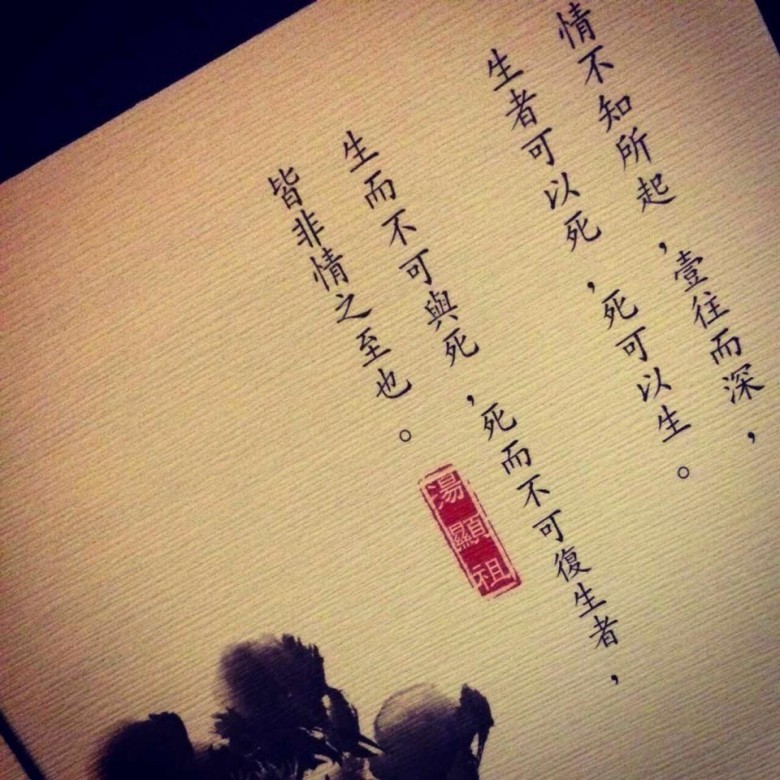 情不知所起,壹往而深,
生者可以死,死可以生。
生而不可與死,死而不可復生者,
皆非情之至也。
湯顯祖